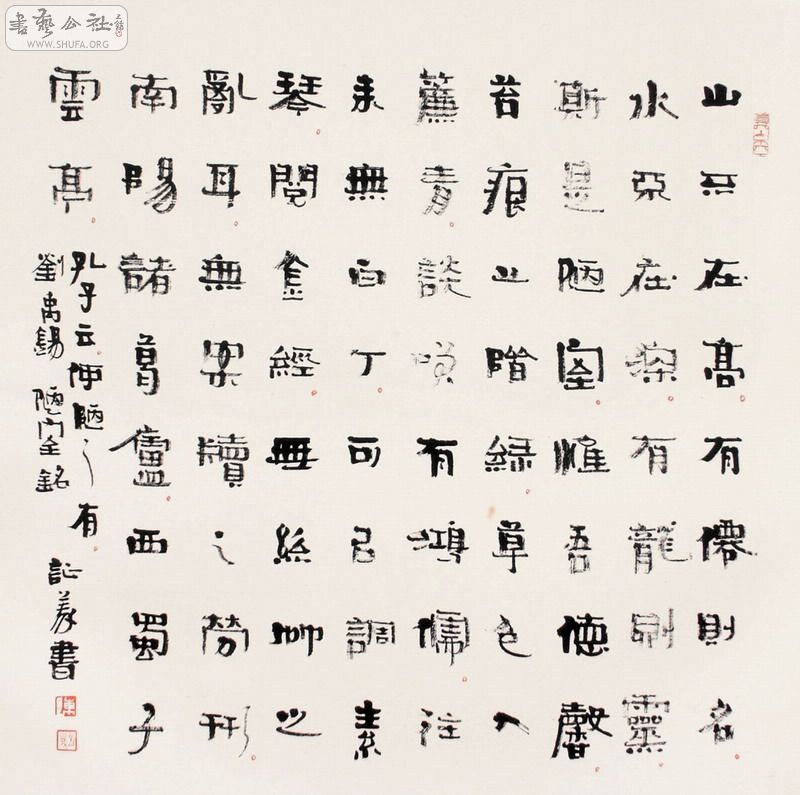 書藝公社
WWW.SHUFA.ORG
山不在高有僊則名
水不在深有龍則靈
斯是陋室惟吾德馨
苔痕上階綠草色入
簾青談咲有鴻儒往
來無白丁可以調素
琴閱金經無絲竹之
亂耳無案牘之勞形
南陽諸葛廬西蜀子
雲亭
孔子云何陋之有
劉禹錫 陋室銘
書